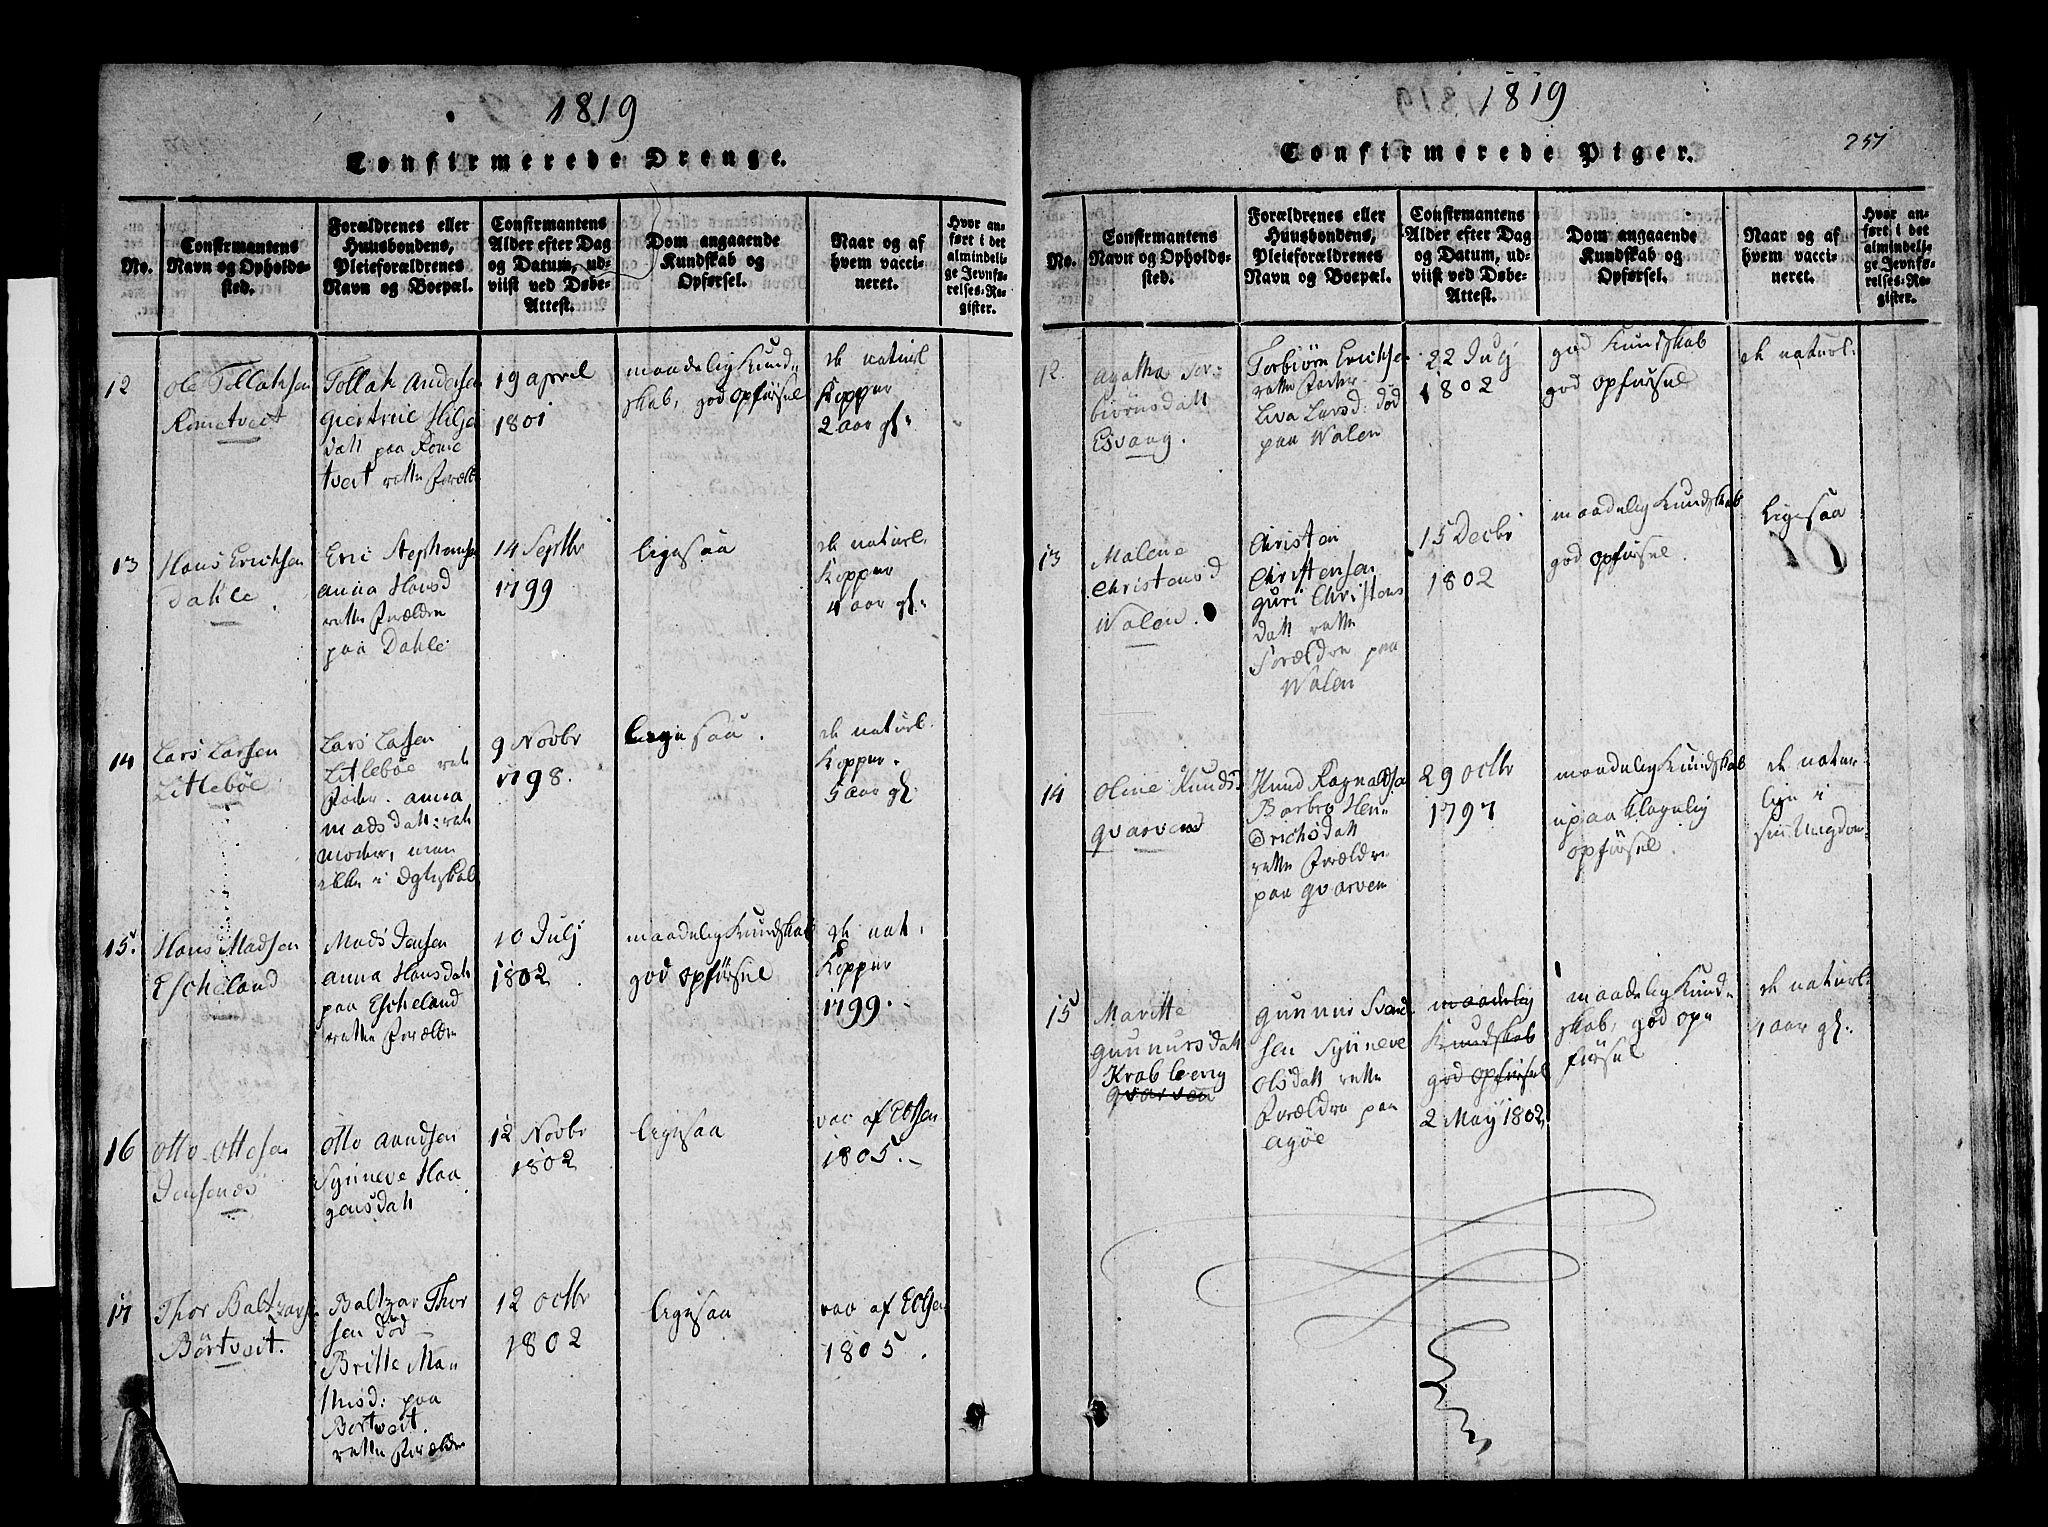 1819
Confirmerede Drenge.
No.
Confirmantens
Navn og Opholds-
sted.
Forældrenes eller
Huusbondens,
Pleieforældrenes
Navn og Boepæl.
Confirmantens
Alder efter Dag
og Datum, ud-
viist ved Døbe-
Attest.
Dom angaaende
Kundskab og
Opførsel.
Naar og af
hvem vacci-
neret.
Hvor an-
ført i det
almindeli-
ge Jevnfø-
relses-Re-
gister.
12
Ole Tollaksen
Rometveit
Tollak Andersen
giertrue Helje
datt paa Rome
tveit rette Foræld
19 april
1801
maadelig Kund-
skab, god opførsel
de naturl
Kopper
2 aar gl:
13
Hans Ericksen
Dahle
Eric Stephensen
anna Hansd
rette Forældre
paa Dahle
14 Septbr
1799
ligesaa
de naturl.
Kopper
4 aar gl:
14
Lars Larsen
Litlebøe
Lars Larsen
Litlebøe rette
Fader. anna
mads datt: rette
moder, men
ikke i Egteskab
9 Novbr
1798.
ligesaa.
de naturl.
Kopper.
5 aar gl.
15.
Hans Madsen
Escheland
Mads Jensen
anna Hansdatt
paa Escheland
rette Forældre
10 Julj
1802
maadelig Kundskab
god opførsel
de nat.
Kopper
1799.
16
Otto Ottesen
Jensenæs
Otto aamdsen
Synneve Haa
gensdatt
12 Novbr
1802
ligesaa
vac af Ebbsen
1805.
17
Thor Baltzarsen
Börtveit.
Baltzar Thor
sen död
Britte Ma-
thisd: paa
Bortveit.
rette Forældre
12 octbr
1802
ligesaa
vac af Ebbsen
1805.
1819
251
Confirmerede Piger.
No.
Confirmantens
Navn og Opholds-
sted.
Forældrenes eller
Huusbondens,
Pleieforældrenes
Navn og Boepæl.
Confirmantens
Alder efter Dag
og Datum, ud-
viist ved Døbe-
Attest.
Dom angaaende
Kundskab og
Opførsel.
Naar og af
hvem vacci-
neret.
Hvor an-
ført i det
almindeli-
ge Jevnfø-
relses-Re-
gister.
12.
Agatha Tor-
biørnsdatt
Esvang.
Torbiørn Ericksen
rette Fader
Liva Larsd: död
paa Walen
22 Julj
1802
god Kundskab
god opførsel
de naturl.
13
Malene
Christensd
Walen.
Christen
Christensen
guri Christens
datt rette
Forældre paa
Walen
15 Decbr
1802
maadelig Kundskab
god opførsel.
ligesaa
14
Oline Knudsd
gvarven
Knud Ragnaldsen
Barbro Hen-
drichsdatt
rette Forældre
paa gvarven
29 octbr
1797
maadelig Kundskab
upaaklagelig
opførsel.
de natur-
lige i
sin Ungdom
15
Maritte
gunnarsdatt
Krakberg
gvarven
gunner Svend
sen Synneve
olsdatt rette
Forældre paa
agøe
maadelig
Kundskab
god opførsel
2 May 1802.
maadelig Kund-
skab, god op-
førsel
de naturl.
4 aar gl.